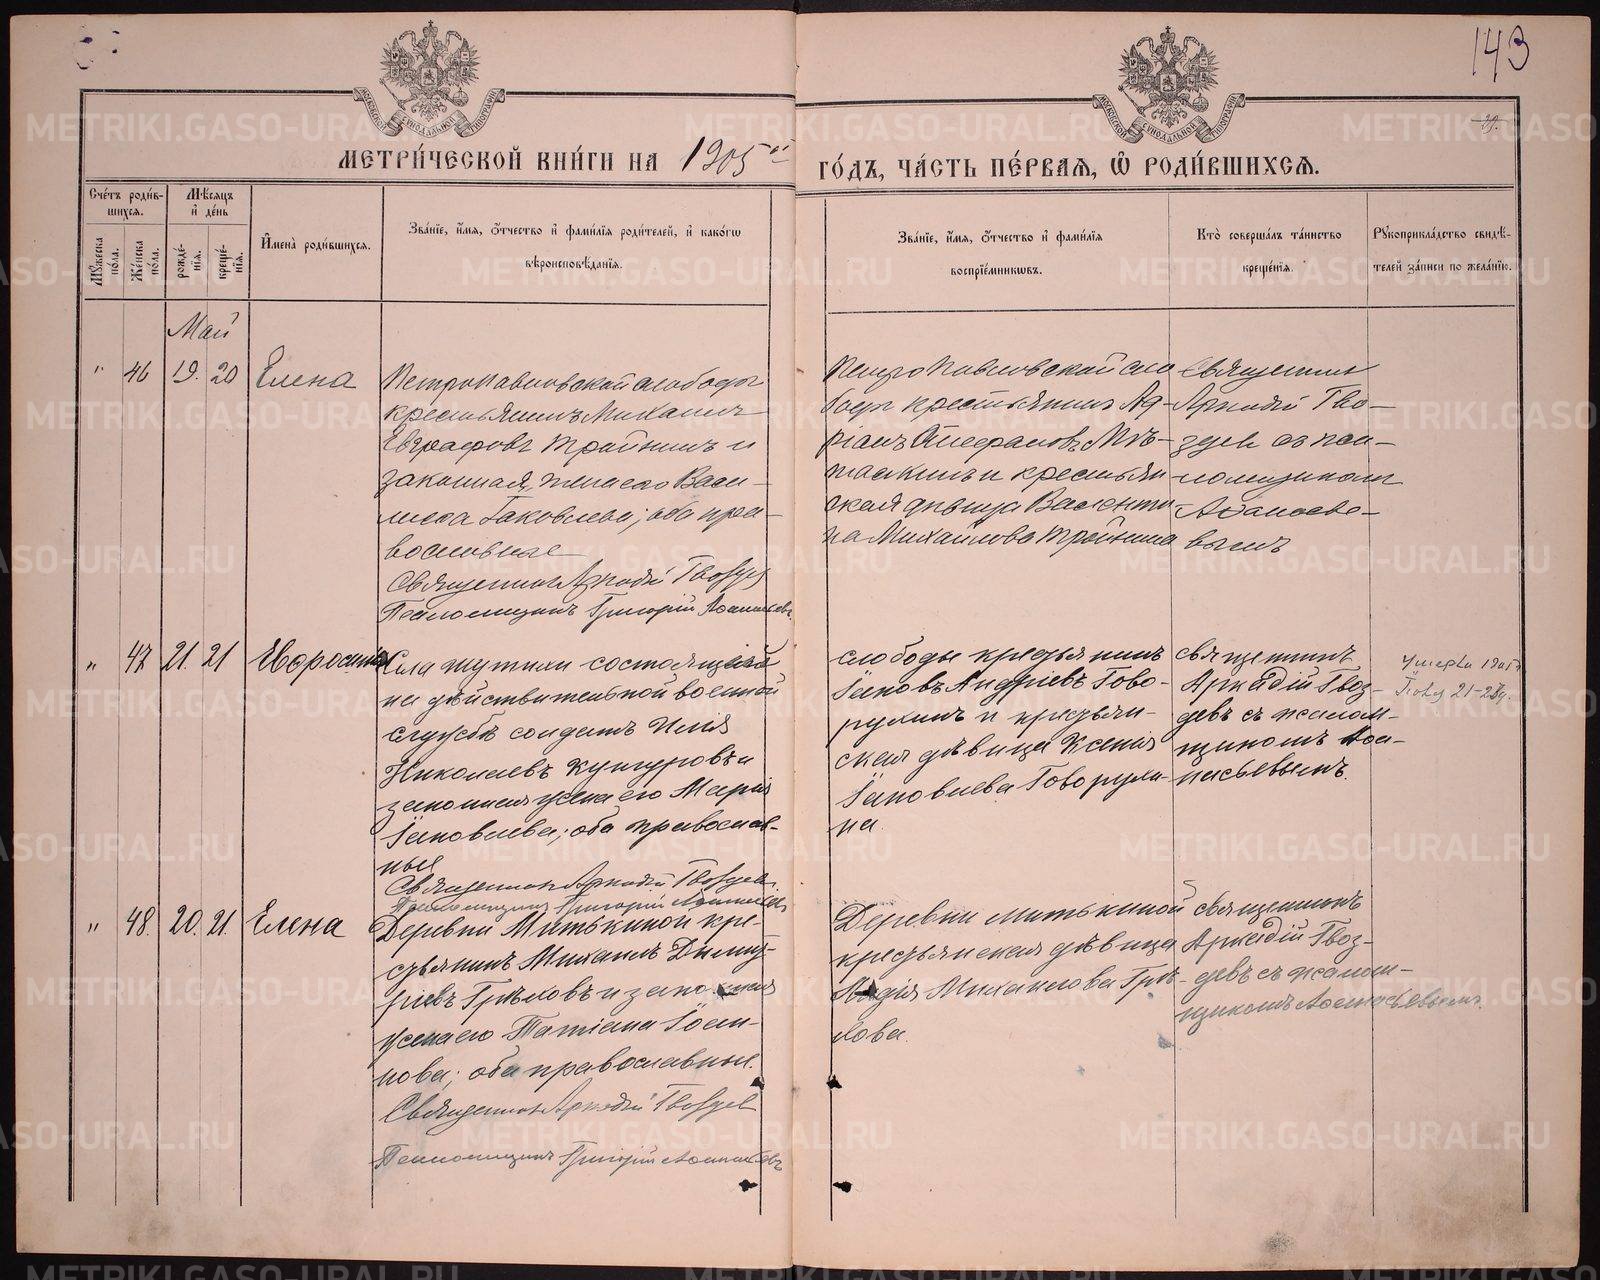 143
29.
МЕТРИ́ЧЕСКОЙ КНИ́ГИ НА 1905ый ГО́ДЪ, ЧА́СТЬ ПЕ́РВАЯ, Ѡ҆ РОДИ́ВШИХСЯ.
Сче́тъ роди́в-
шихся.
Мѣ́сяцъ
и҆ де́нь
Мꙋ́жеска по́ла.
Же́нска по́ла.
рожде́-
нїя.
креще́-
нїя.
И҆мена̀ роди́вшихся.
Зва́нїе, и҆́мя, ѻ҆́тчество и҆ фами́лїя роди́телей, и҆ како́гѡ
вѣроисповѣ́данїя.
Зва́нїе, и҆́мя, ѻ҆́тчество и҆ фами́лїя
воспрїе́мникѡвъ.
Кто̀ соверша́лъ та́инство
креще́нїя.
Рꙋкоприкла́дство свидѣ́-
телей за́писи по жела́нїю.
Май
" 46 19. 20 Елена
Петропавловской слободы
крестьянинъ Михаилъ
Евграфовъ Тройнинъ и
законная жена его Васи-
лиса Іаковлева; оба пра-
вославные
Священникъ Аркадій Гвоздев
Псаломщикъ Григорій Аѳанасьевъ
Петропавловской сло
боды крестьянинъ Ад-
ріанъ Стефановъ
и крестьян
ская дѣвица Валенти
на Михайлова Тройнина
Священникъ
Аркадій Гво-
здев съ псал-
ломщикомъ
Аѳанасье-
вымъ
" 47 21. 21 Евфросинія
Села Шутихи состоящій
на дѣйствительной военной
службѣ солдатъ Илія
Николаевъ Кунгуровъ и
законная жена его Марія
Іаковлева; оба православ-
ные
Священникъ Аркадій Гвоздев
Псаломщикъ Григорій Аѳанасьевъ
слободы крестьянинъ
Іаковъ Андреевъ Гово-
рухинъ и крестьян-
ская дѣвица Ксенія
Іаковлева Говорухи-
на
священникъ
Аркадій Гвоз-
девъ съ псалом-
щикомъ Аѳа-
насьевымъ.
Умерла 1905 г
21-23
" 48. 20. 21. Елена
Деревни Митькиной кре-
стьянинъ Михаилъ Димит-
ріевъ Грѣховъ и законная
жена его Татіана Іоан-
нова; оба православные.
Священникъ Аркадій Гвоздев
Псаломщикъ Григорій Аѳанасьевъ
Деревни Митькиной
крестьянская дѣвица
Лидія Михаилова Грѣ-
хова.
священникъ
Аркадій Гвоз-
девъ съ псалом-
щикомъ Аѳанасьевымъ.
METRIKI.GASO-URAL.RU